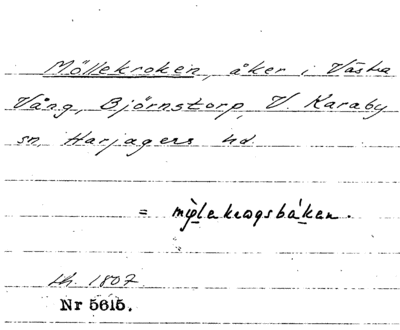 Möllekroken, åker i Västra
Vång, Björnstorp, V. Karaby
sn, Harjagers hd.
= mỳlekrogsbáken.
Lh. 1807.
Nr 5615.